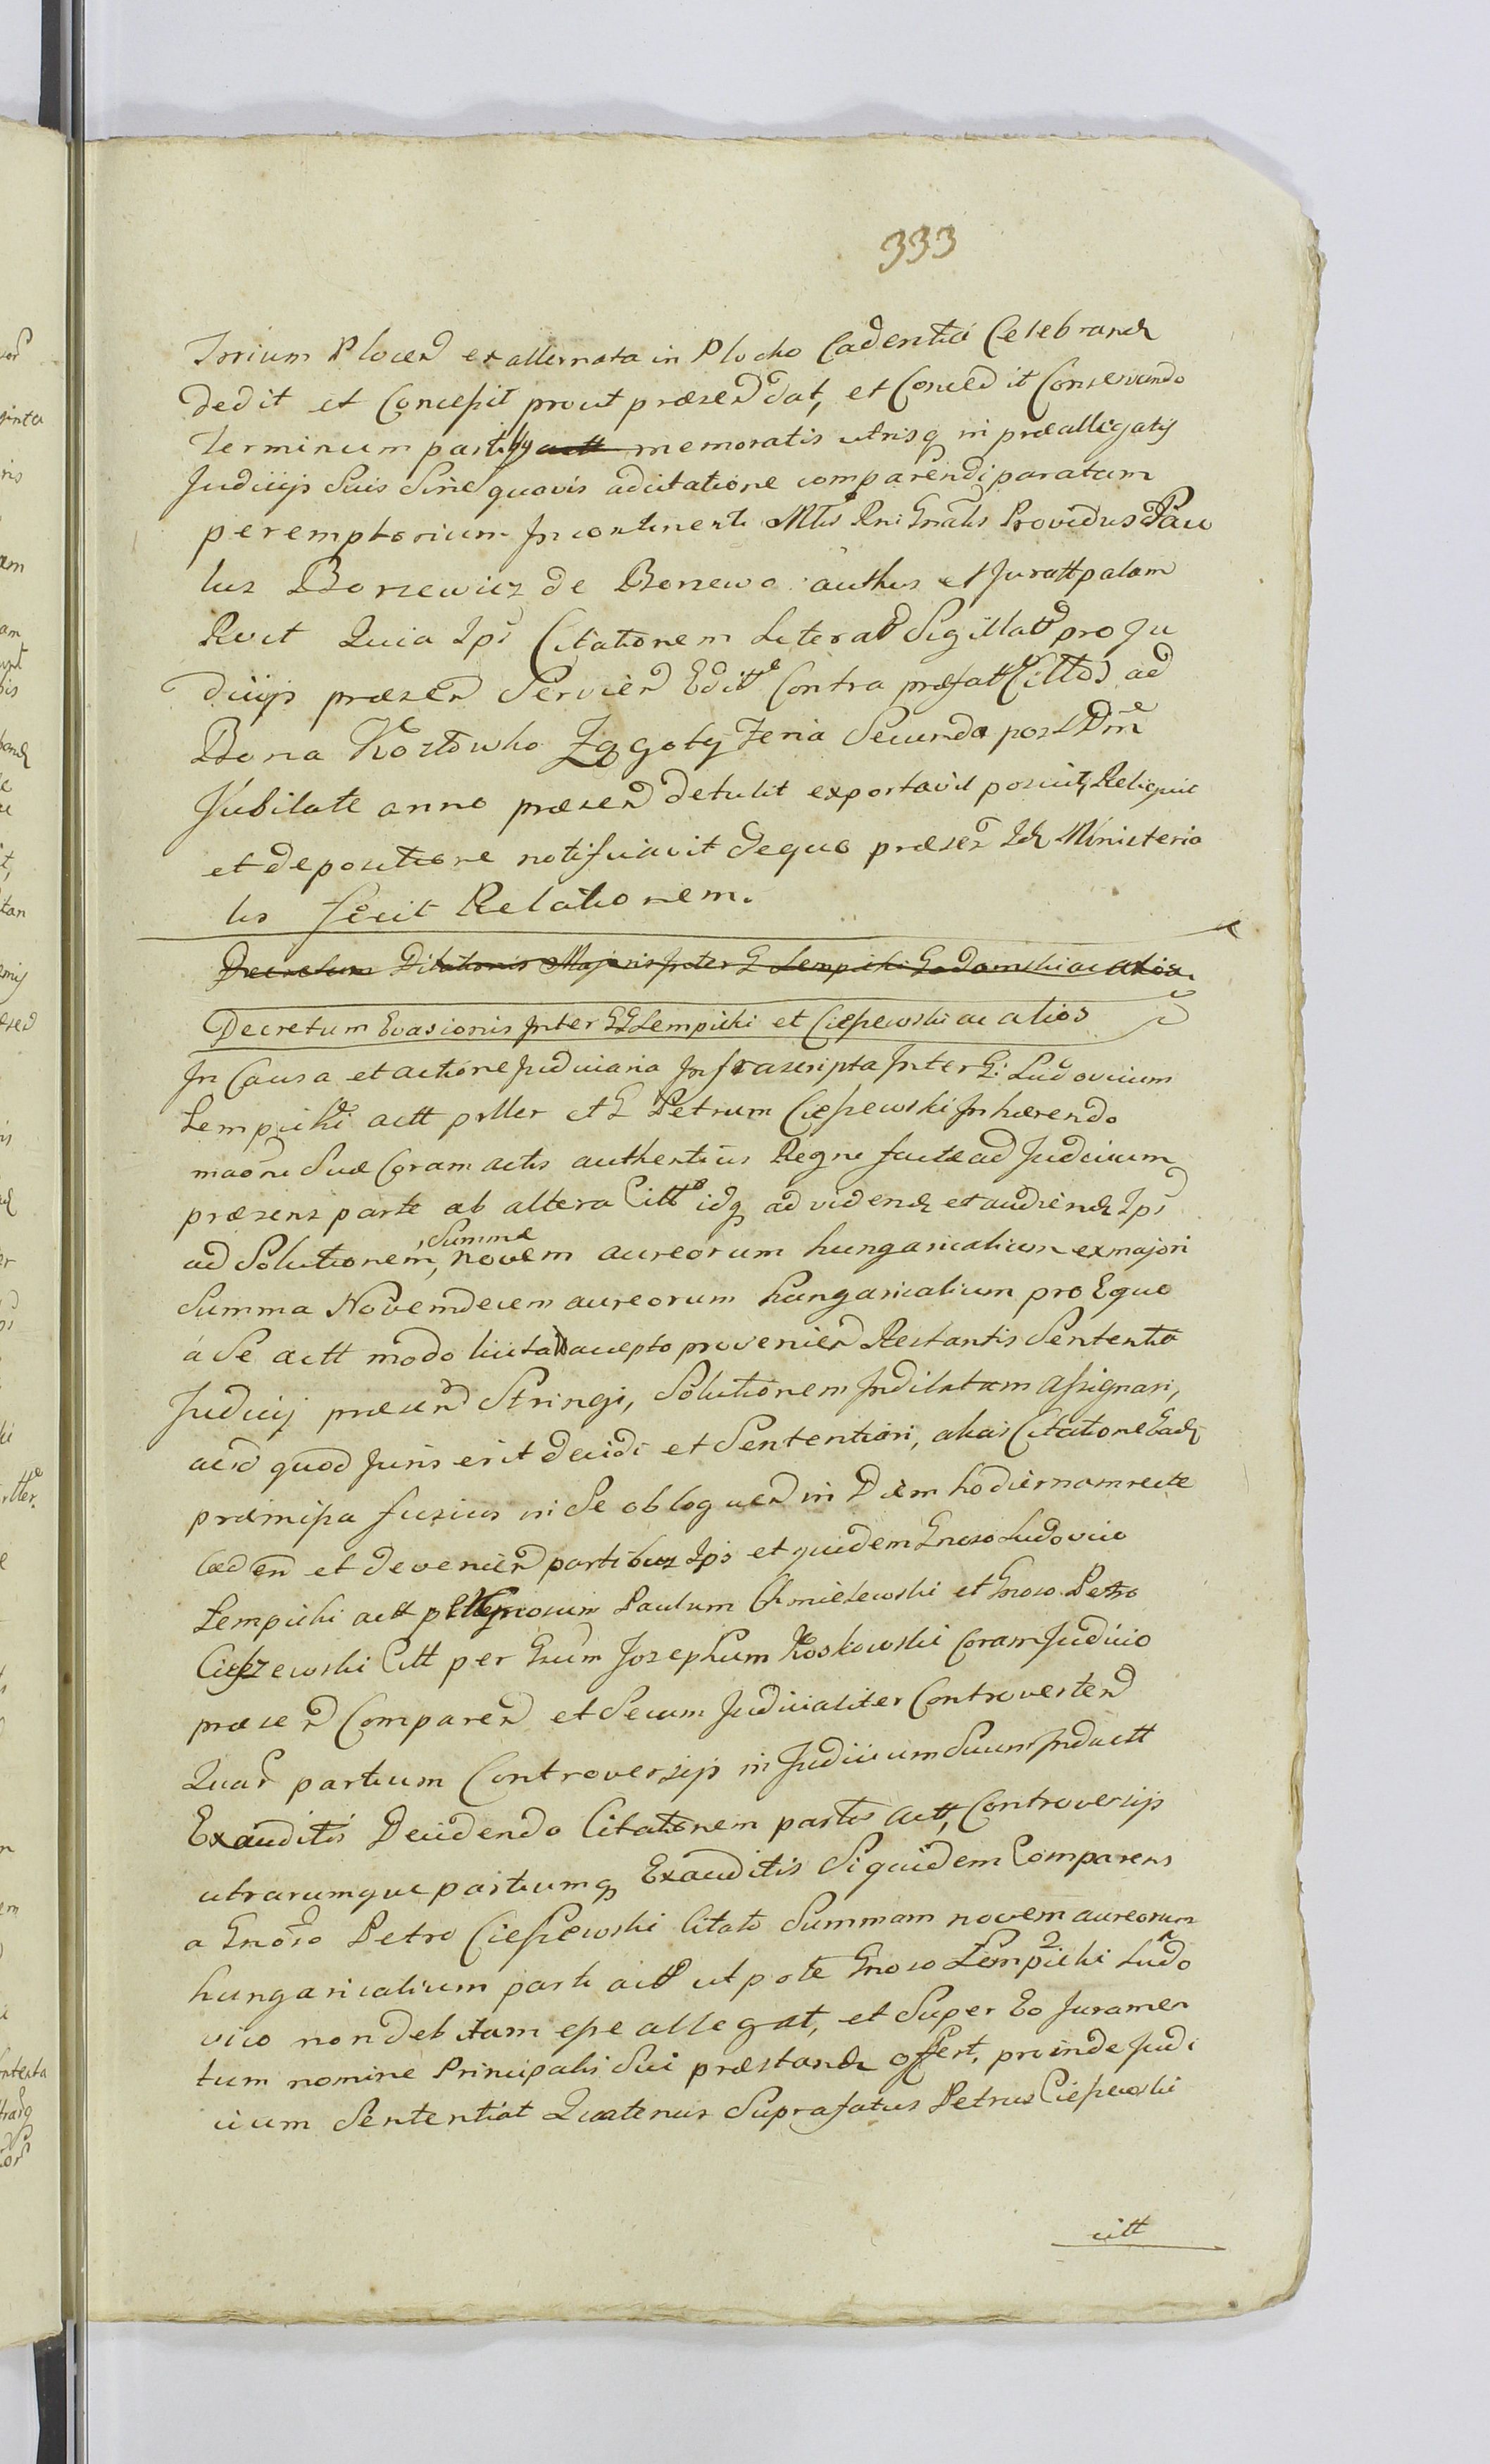 333
Trrium Plocen ex alternata in Plocko Cadentia Celebrand
dedit et Concessit prout præsen dat, et Conced it Conservando
Terminum partibus actt memoratis utrisq in præallegatis
Judicijs Suis Sine quovis adcitatione comparendi paratum
peremptorium Incontinenti Mlis Rni Gnalis Providus Pau
lus Borzewicz de Borzewo authus et Juratt palam
Rvit Quia Ips Citationem Literat Sigillat pro Ju
dicijs præsen Servien Editt Contra præfatt Cittos ad
Bona Kozłowko Zągoty Feria Secunda post Dm̄e
Jubilate anno præsen detulit exportavit posuit, Reliquit
et depositione notificavit de quo præsen Id Ministeria
lis fecit Relationem.
Decretum Dilationis Majoris Inter G Lempicki Gadomski ac alios.
Decretum Evasionis Inter GG Lempicki et Ciessewski ac alios
In Causa et actione Judiciaria Infrascripta Inter G: Ludovicum
Lempicki actt p Mer et G Petrum Ciessewski Inhærendo
maōni Suæ Coram actis authenticis Regni factæ ad Judicium
præsens parte ab altera Citt idq ad vidend et audiend Ips
ad Solutionem, Summæ novem aureorum hungaricalium ex majori
Summa Novemdecem aureorum hungaricalium pro Equo
á Se actt modo licita accepto provenien Restantis Sententia
Judicij præsen Stringi, Solutionem Indilatam assignari,
acid quod Juris erit decidi et Sententiari, alias Citatione Ead
præmissa fusius in Se obloquen in Diem hodiernam recte
Caden et devenien partibus Ips et quidem Gnoso Ludovico
Lempicki actt p Mgnosum Paulum Chmielewski et Gnoso Petro
Ciesszewski Citt per Gsum Josephum Koskowski Coram Judicio
præsen Comparen et Secum Judicialiter Controverten
Quar partium Controversijs in Judicium Suum Inductt
Exauditis Decidendo Citationem partis actt, Controversijs
utrarumque partiumq Exauditis Siquidem Comparens
a Gnoso Petro Ciessewski Citato Summam novem aureorum
hungaricalium parti actt utpote Gnoso Lempicki Ludo
vico non debitam esse allegat, et Super Eo Juramen
tum nomine Principalis Sui præstand offert, proinde Judi
cium Sententiat Quatenus Suprafatus Petrus Ciessewski
citt